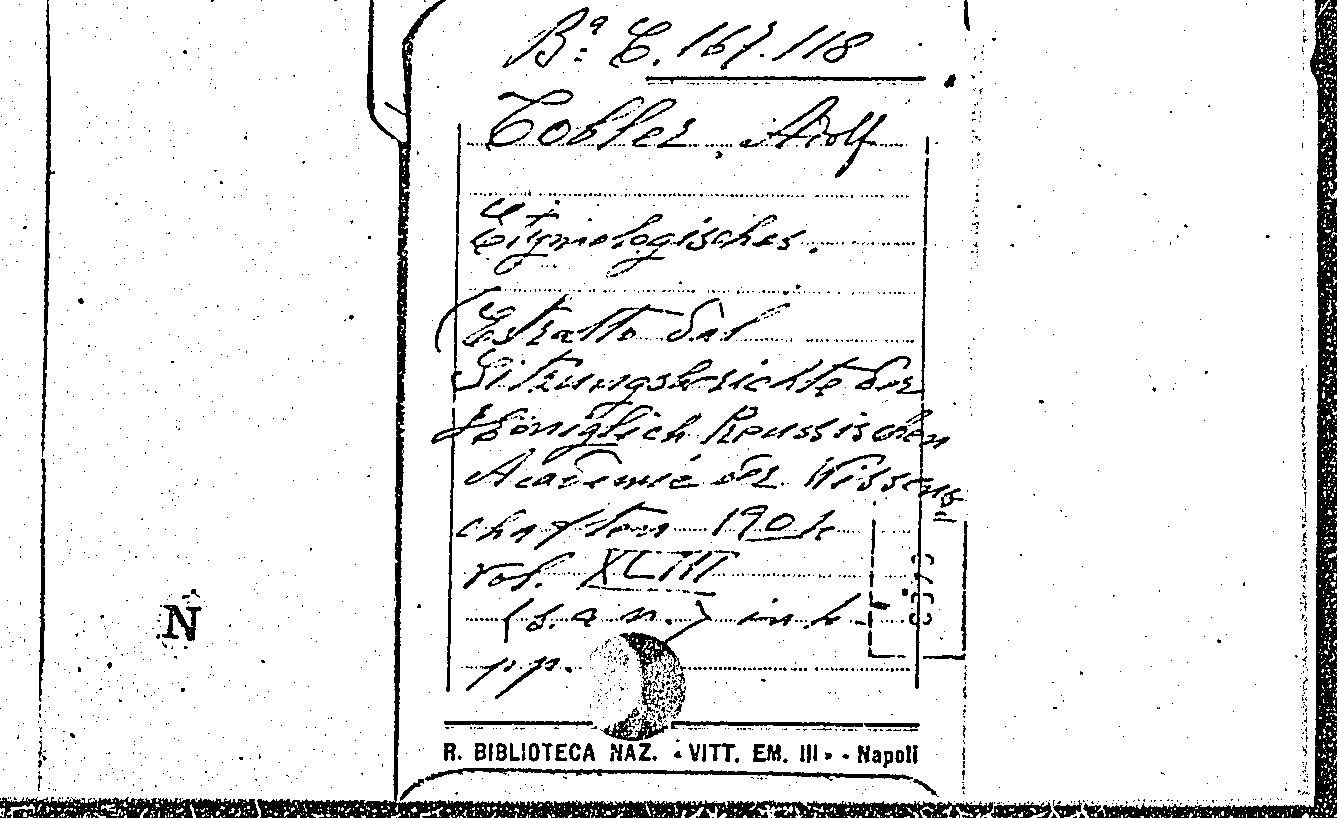 Bª C. 167.118
Tobler, Adolf
Etymologisches.
(Estratto dal
Sitzungsberichte der
Königlich Preussischen
Academie der Wissens
chaften 1904
vol. XLIII
(s. a. n.) in 4.
pp.
N
R. BIBLIOTECA NAZ. « VITT. EM. III » - Napoli